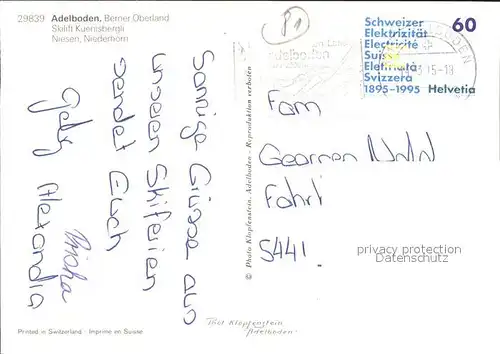 29839 Adelboden, Berner Oberland
Skilift Kuenisbergli
Niesen, Niederhorn
81
Sonnige Grüsse aus
unseren Skiferien
sendet Euch
Gaby Alexandra
Schweizer
Elektrizität
Electricité
Suisse
Elettricità
Svizzera
1895-1995
60
Helvetia
Fam
Fahrt
5441
© Photo Klopfenstein, Adelboden - Reproduktion verboten
privacy protection
Datenschutz
Printed in Switzerland - Imprimé en Suisse
Phot Klopfenstein
Adelboden